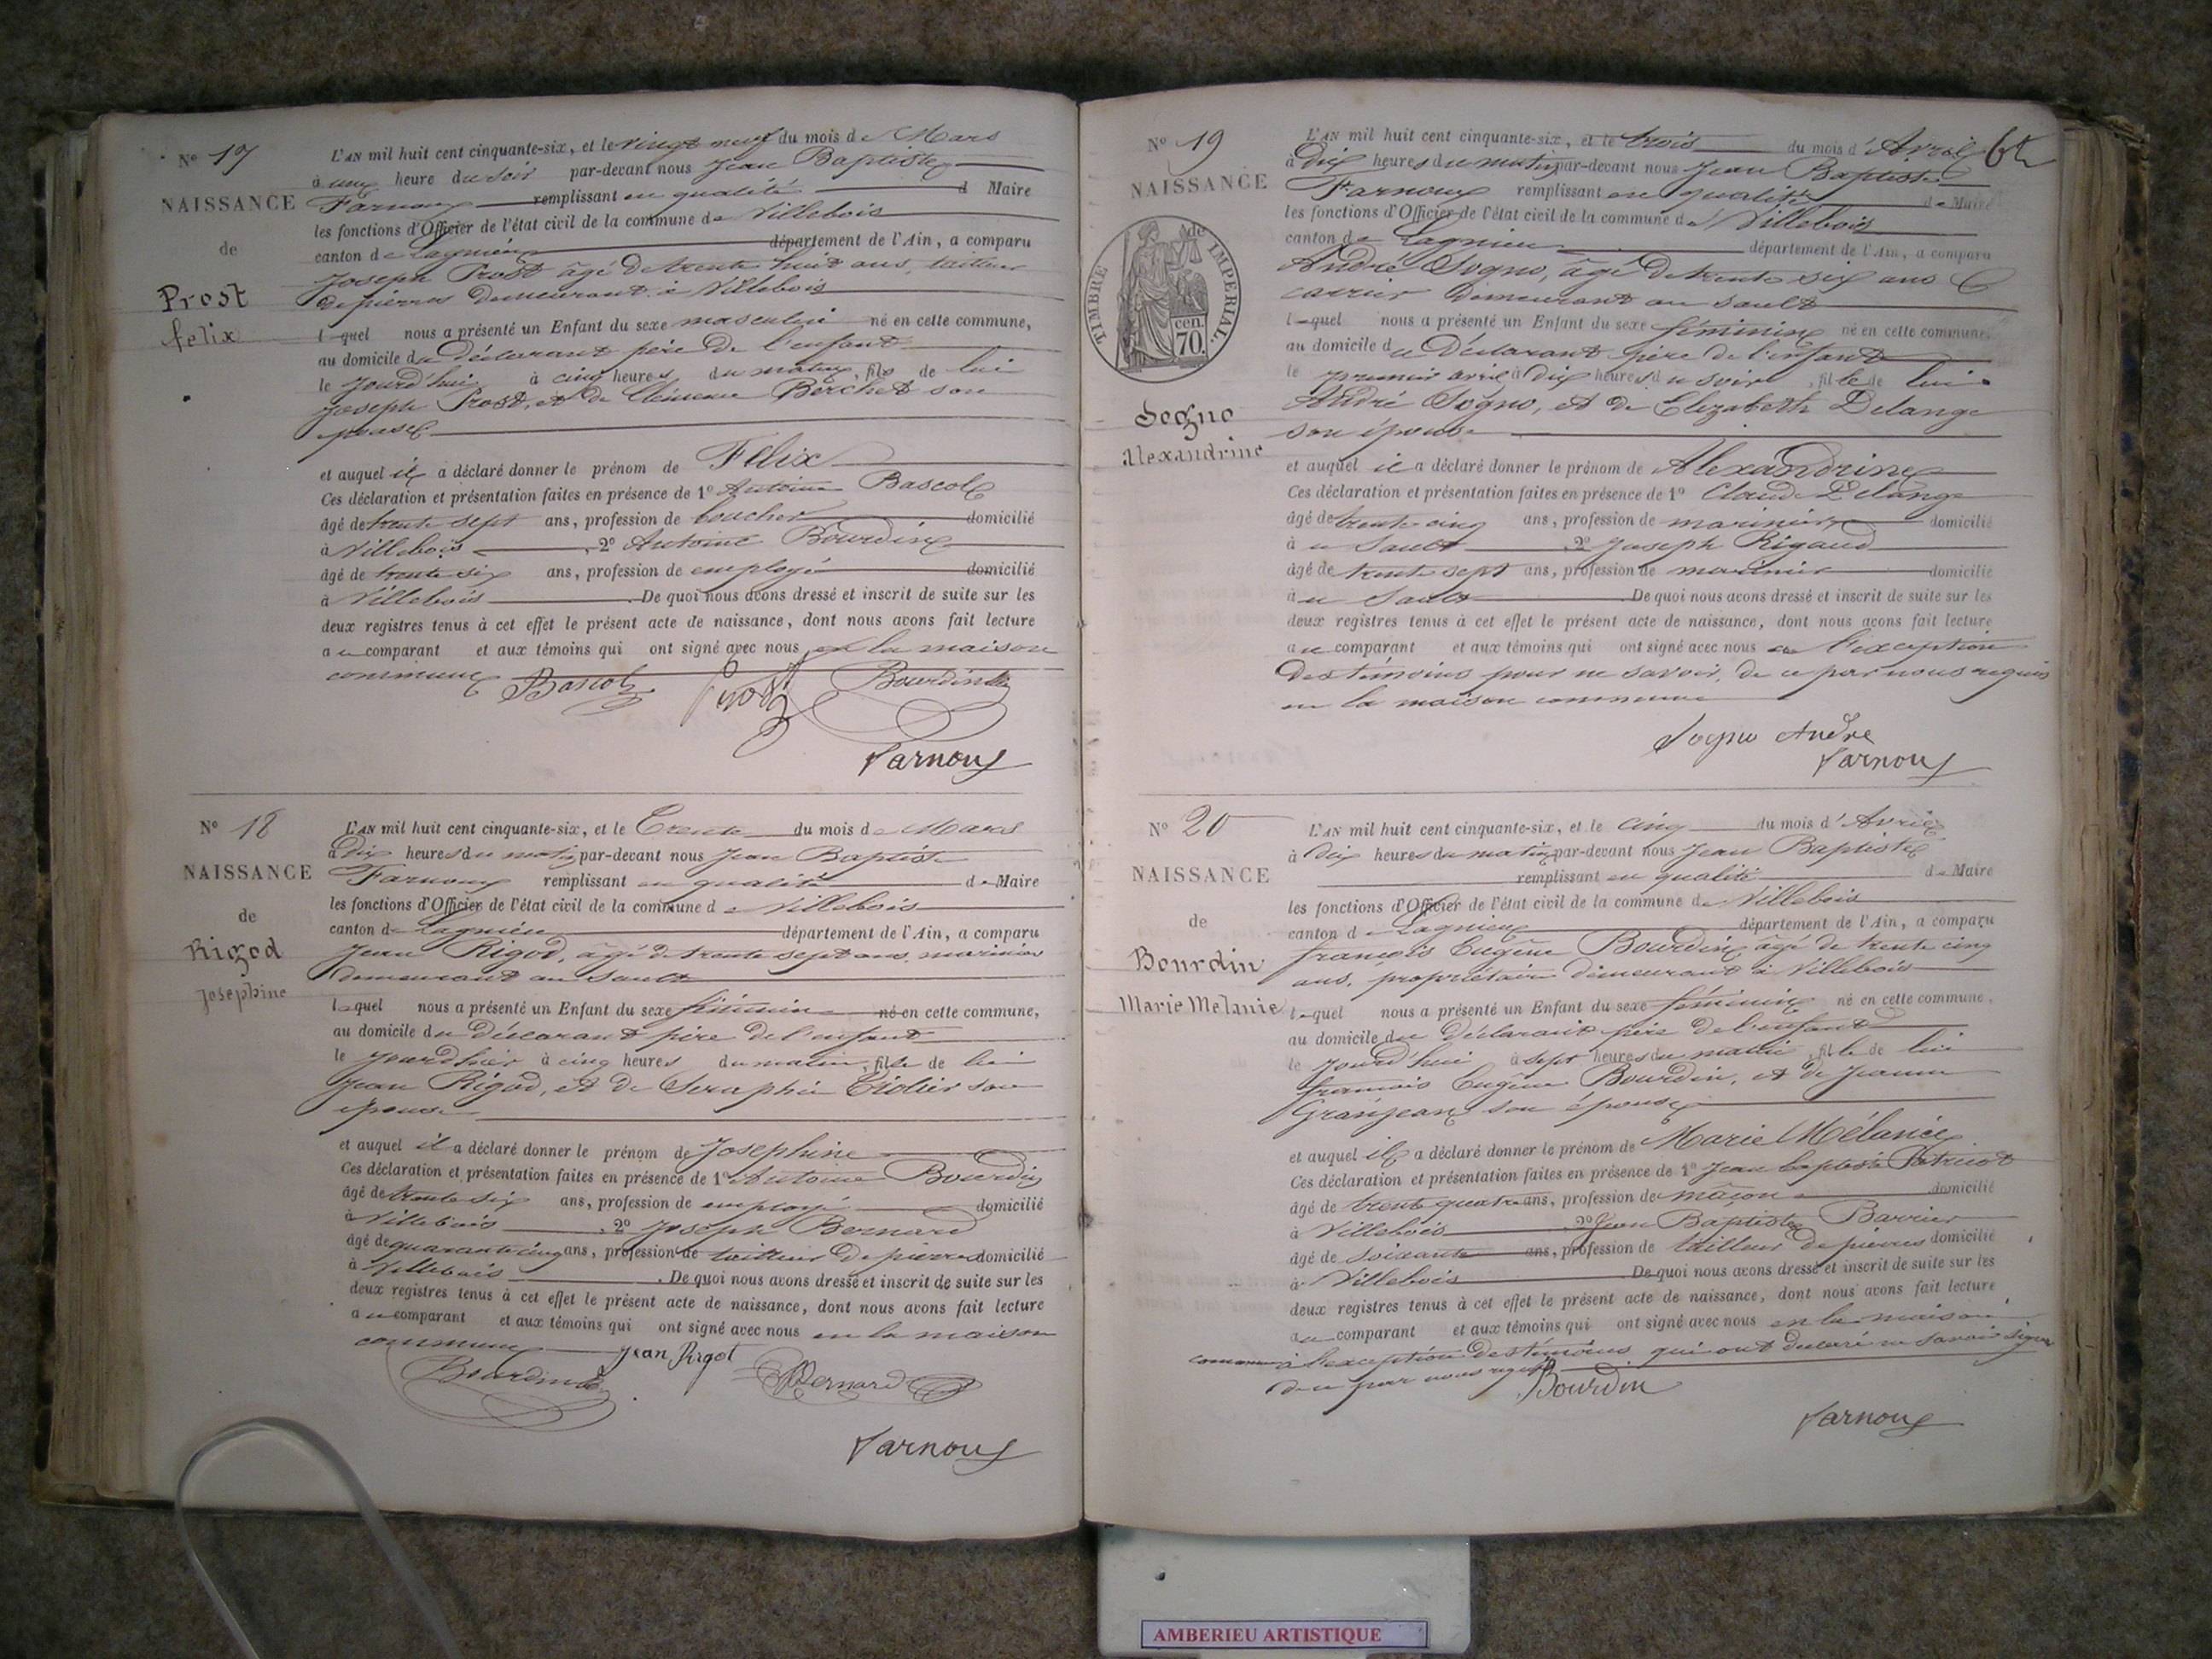 Nº 17
NAISSANCE
de
Prost
felix
L'AN mil huit cent cinquante-six, et le vingt neuf du mois de Mars
à une heure du soir par-devant nous Jean Baptiste
Farnoux remplissant en qualité d Maire
les fonctions d'Officier de l'état civil de la commune de Villebois
canton de Lagnieu département de l'Ain, a comparu
Joseph Prost âgé de trente huit ans, tailleur
de pierres demeurant à Villebois
lequel nous a présenté un Enfant du sexe masculin né en cette commune,
au domicile du déclarant père de l'enfant
le jourd'hui à cinq heures du matin, fils de lui
Joseph Prost, et de Clémence Berchet son
épouse
et auquel il a déclaré donner le prénom de Félix
Ces déclaration et présentation faites en présence de 1º Antoine Bascol
âgé de trente sept ans, profession de boucher domicilié
à Villebois , 2º Antoine Bourdin
âgé de trente six ans, profession de employé domicilié
à Villebois . De quoi nous avons dressé et inscrit de suite sur les
deux registres tenus à cet effet le présent acte de naissance, dont nous avons fait lecture
au comparant et aux témoins qui ont signé avec nous en la maison
commune Bascol Prost Bourdin
Farnoux
Nº 18
NAISSANCE
de
Rigod
Josephine
L'AN mil huit cent cinquante-six, et le Trente du mois de Mars
à dix heures du matin par-devant nous Jean Baptiste
Farnoux remplissant en qualité de Maire
les fonctions d'Officier de l'état civil de la commune de Villebois
canton de Lagnieu département de l'Ain, a comparu
Jean Rigod, âgé de trente sept ans, marinier
demeurant au Sault
lequel nous a présenté un Enfant du sexe féminin né en cette commune,
au domicile du déclarant père de l'enfant
le jourd'hier à cinq heures du matin, fille de lui
Jean Rigod, et de Seraphie Triolier son
épouse
et auquel il a déclaré donner le prénom de Josephine
Ces déclaration et présentation faites en présence de 1º Antoine Bourdin
âgé de trente six ans, profession de employé domicilié
à Villebois , 2º Joseph Bernard
âgé de quarante cinq ans, profession de tailleur de pierres domicilié
à Villebois . De quoi nous avons dressé et inscrit de suite sur les
deux registres tenus à cet effet le présent acte de naissance, dont nous avons fait lecture
au comparant et aux témoins qui ont signé avec nous en la maison
commune Jean Rigot
Bourdin Bernard
Farnoux
64
Nº 19
NAISSANCE
de
TIMBRE IMPERIAL.
70 cen.
Sogno
Alexandrine
L'AN mil huit cent cinquante-six, et le trois du mois d'Avril
à dix heures du matin par-devant nous Jean Baptiste
Farnoux remplissant en qualité de Maire
les fonctions d'Officier de l'état civil de la commune de Villebois
canton de Lagnieu département de l'Ain, a comparu
André Sogno, âgé de trente six ans
carrier demeurant au Sault
lequel nous a présenté un Enfant du sexe féminin né en cette commune,
au domicile du Déclarant père de l'enfant
le premier avril à dix heures du soir, fille de lui
André Sogno, et de Elizabeth Delange
son épouse
et auquel il a déclaré donner le prénom de Alexandrine
Ces déclaration et présentation faites en présence de 1º Claude Delange
âgé de trente cinq ans, profession de marinier domicilié
à u Sault , 2º Joseph Rigaud
âgé de trente sept ans, profession de marinier domicilié
à u Sault . De quoi nous avons dressé et inscrit de suite sur les
deux registres tenus à cet effet le présent acte de naissance, dont nous avons fait lecture
au comparant et aux témoins qui ont signé avec nous a l'exception
des témoins pour ne savoir, de ce par nous requis
en la maison commune
Sogno André
Farnoux
Nº 20
NAISSANCE
de
Bourdin
Marie Melanie
L'AN mil huit cent cinquante-six, et le cinq du mois d'Avril
à dix heures du matin par-devant nous Jean Baptiste
remplissant en qualité de Maire
les fonctions d'Officier de l'état civil de la commune de Villebois
canton de Lagnieu département de l'Ain, a comparu
françois Eugène Bourdin, âgé de trente cinq
ans, propriétaire demeurant à Villebois
lequel nous a présenté un Enfant du sexe féminin né en cette commune,
au domicile du déclarant père de l'enfant
le jourd'hui à sept heures du matin, fille de lui
françois Eugène Bourdin, et de Jeanne
Granjean son épouse
et auquel il a déclaré donner le prénom de Marie Mélanie
Ces déclaration et présentation faites en présence de 1º Jean baptiste
âgé de trente quatre ans, profession de mâçon domicilié
à Villebois 2º Jean Baptiste Barrier
âgé de soixante ans, profession de tailleur de pierres domicilié
à Villebois De quoi nous avons dressé et inscrit de suite sur les
deux registres tenus à cet effet le présent acte de naissance, dont nous avons fait lecture
au comparant et aux témoins qui ont signé avec nous en la maison
commune à l'exception des témoins qui ont declaré ne savoir signer
de ce par nous requis
Bourdin
Farnoux
AMBERIEU ARTISTIQUE